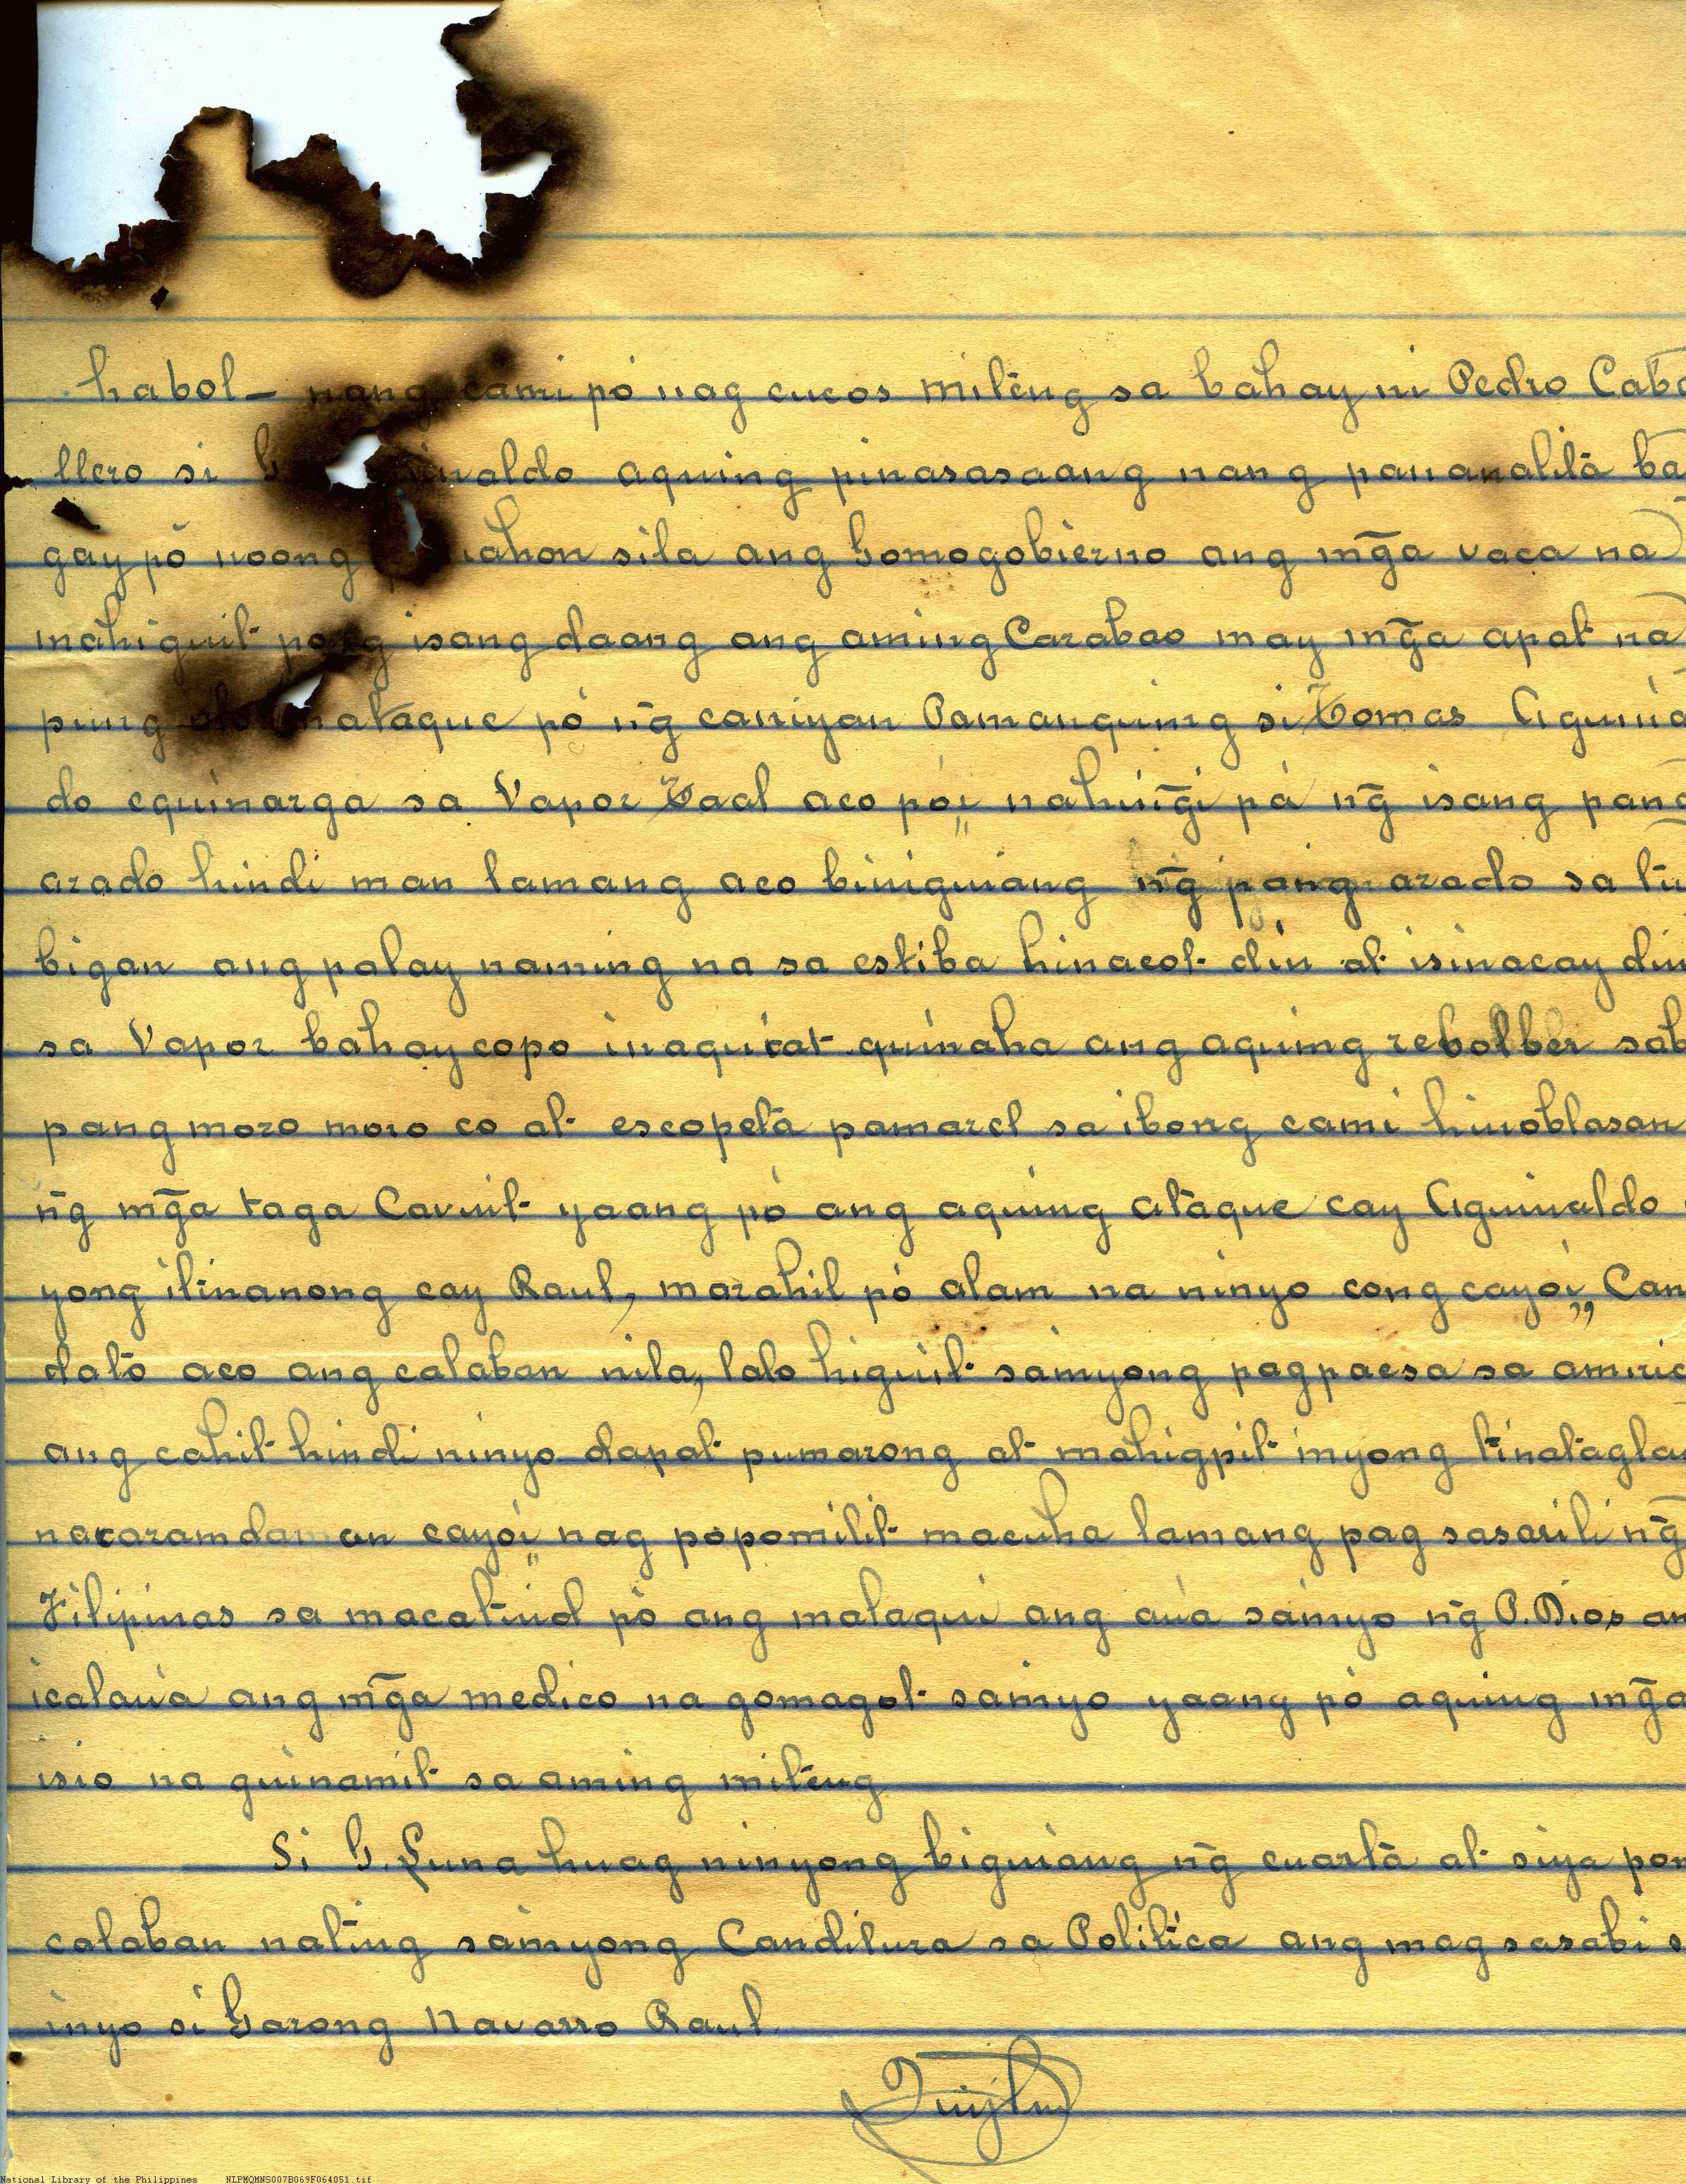 habol – nang cami pó nag cucos miténg sa bahay ni Pedro Caba
llero si G. naldo aquing pinasasaang nang pananalitá ba
gay pó noong ahon sila ang Gomogobierno ang mg̃a vaca na
mahiguit po ng isang daang ang aming Carabao may mg̃a apat na
pung inatáque pó ng̃ caniyan Pamanquing si Tomas Aguina
do equinarga sa Vapor Taal aco póı„ nahing̃i pá ng̃ isang pang
arado hindi man lamang aco biniguiang ng̃ pang arado sa tu
bigan ang palay naming na sa estiba hinacot din at isinacay din
sa Vapor bahay copo inaquiat quinaha ang aquing rebolber sab
pang moro moro co at escopetá pamarel sa ibong cami hinoblasan
ng̃ mg̃a taga Cavuit yaang pó ang aquing atáque cay Aguinaldo
yong itinanong cay Raul, marahil pó alam na ninyo cong cayoı„ Can
dato aco ang calaban nila, lalo higuit sainyong pagpaesa sa americ
ang cahit hindi ninyo dapat pumarong at mahigpit inyong tinatagla
nacaramdaman cayoi„ nag popomilit macuha lamang pag sasarili ng̃
Filipinas sa macatuid pó ang malaqui ang auá sainyo ng̃ P. Dios an
icalauá ang mg̃a medico na gomagot sainyo yaang pó aquing mg̃a
isio na guinamit sa aming miténg
Si G. Luna huag ninyong biguiang ng̃ cuartá at siya pon
calaban nating sainyong Canditura sa Politica ang magsasabi s
inyo si Garong Navarro Raul.
National Library of the Philippines NLPMQMNS007B069F064051.tif